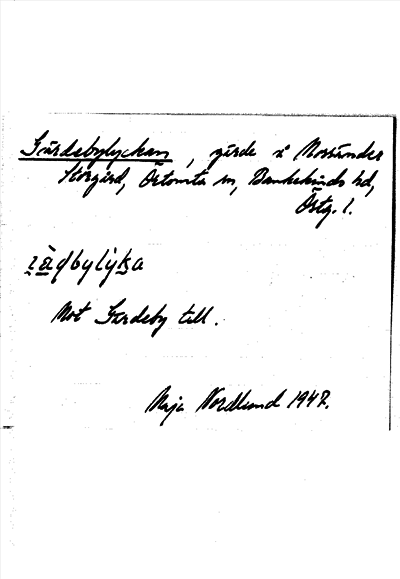 Gärdebylyckan, gärde i Norrunder
Storgård, Örtomta sn, Bankekinds hd,
Östg. l.
Mot Gärdeby till.
Maja Nordlund 1947.